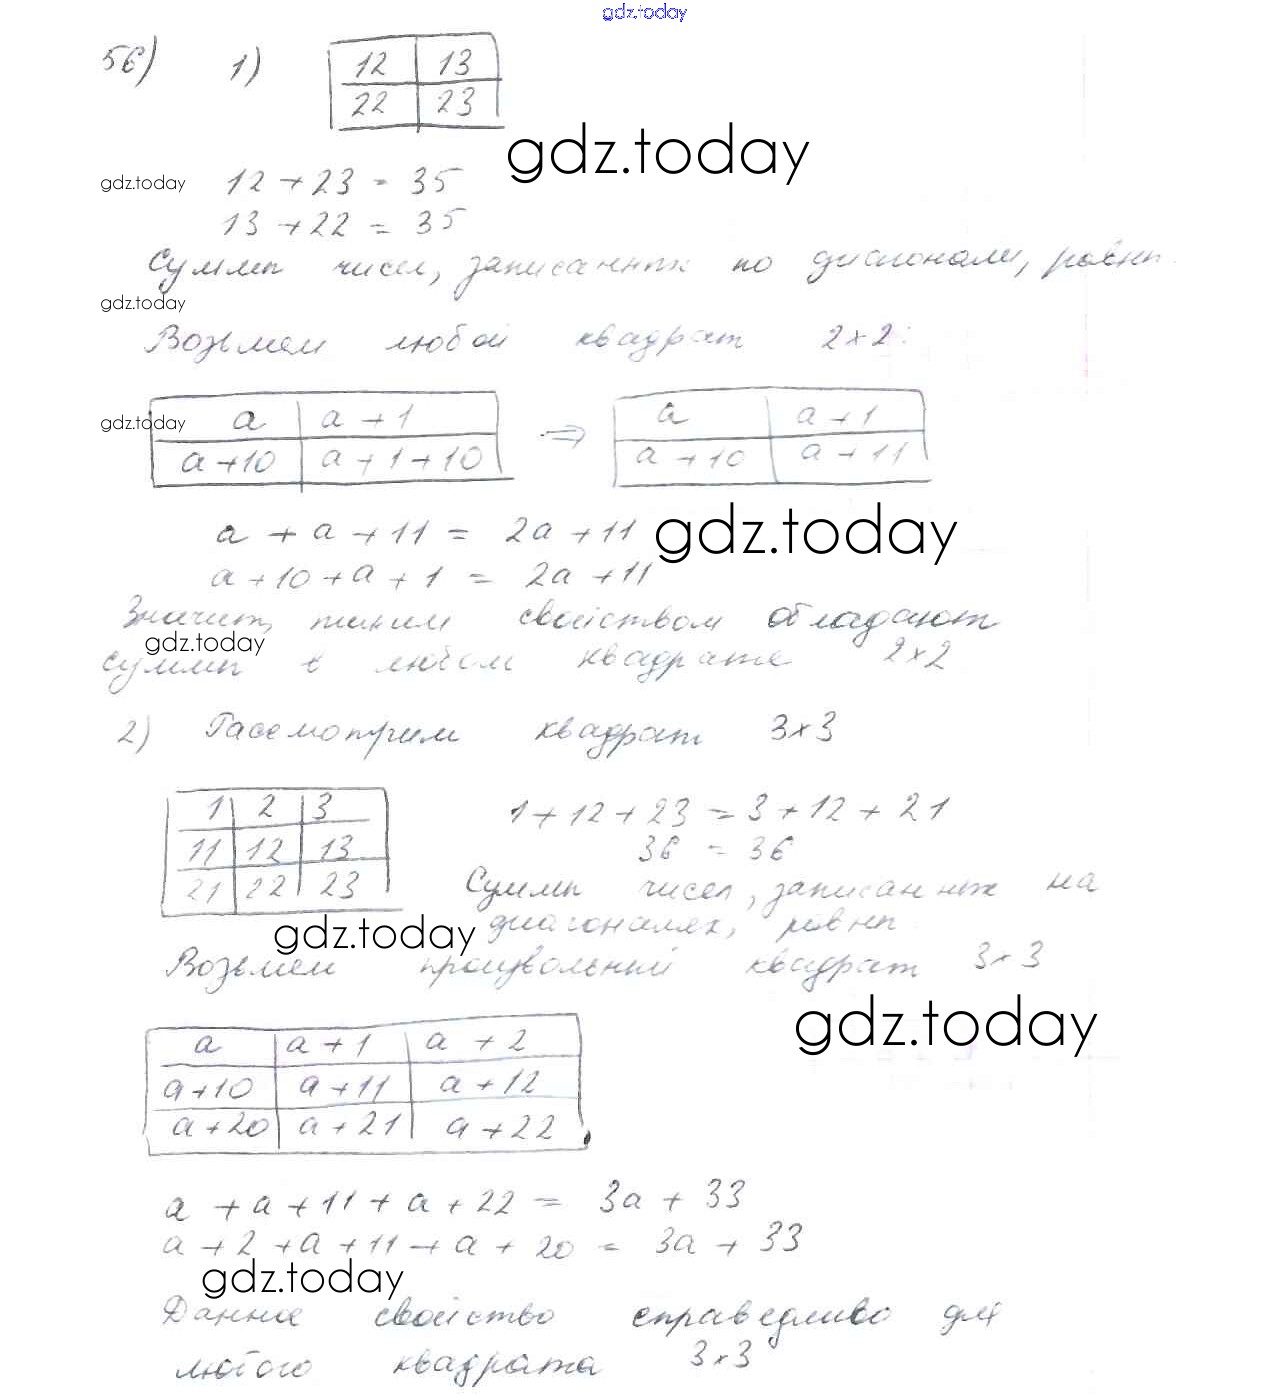 gdz.today
56) 1)
12 13
22 23
gdz.today
gdz.today 12 + 23 = 35
13 + 22 = 35
Суммы чисел, записанных по диагонали, равны.
gdz.today
Возьмем любой квадрат 2×2:
gdz.today
a a + 1 ⇒ a a + 1
a + 10 a + 1 + 10 a + 10 a + 11
a + a + 11 = 2a + 11 gdz.today
a + 10 + a + 1 = 2a + 11
Значит, таким свойством обладают
gdz.today
суммы в любом квадрате 2×2
2) Рассмотрим квадрат 3×3
1 2 3 1 + 12 + 23 = 3 + 12 + 21
11 12 13 36 = 36
21 22 23 Суммы чисел, записанных на
gdz.today диагоналях, равны.
Возьмем произвольный квадрат 3×3
gdz.today
a a + 1 a + 2
a + 10 a + 11 a + 12
a + 20 a + 21 a + 22
a + a + 11 + a + 22 = 3a + 33
a + 2 + a + 11 + a + 20 = 3a + 33
gdz.today
Данное свойство справедливо для
любого квадрата 3×3